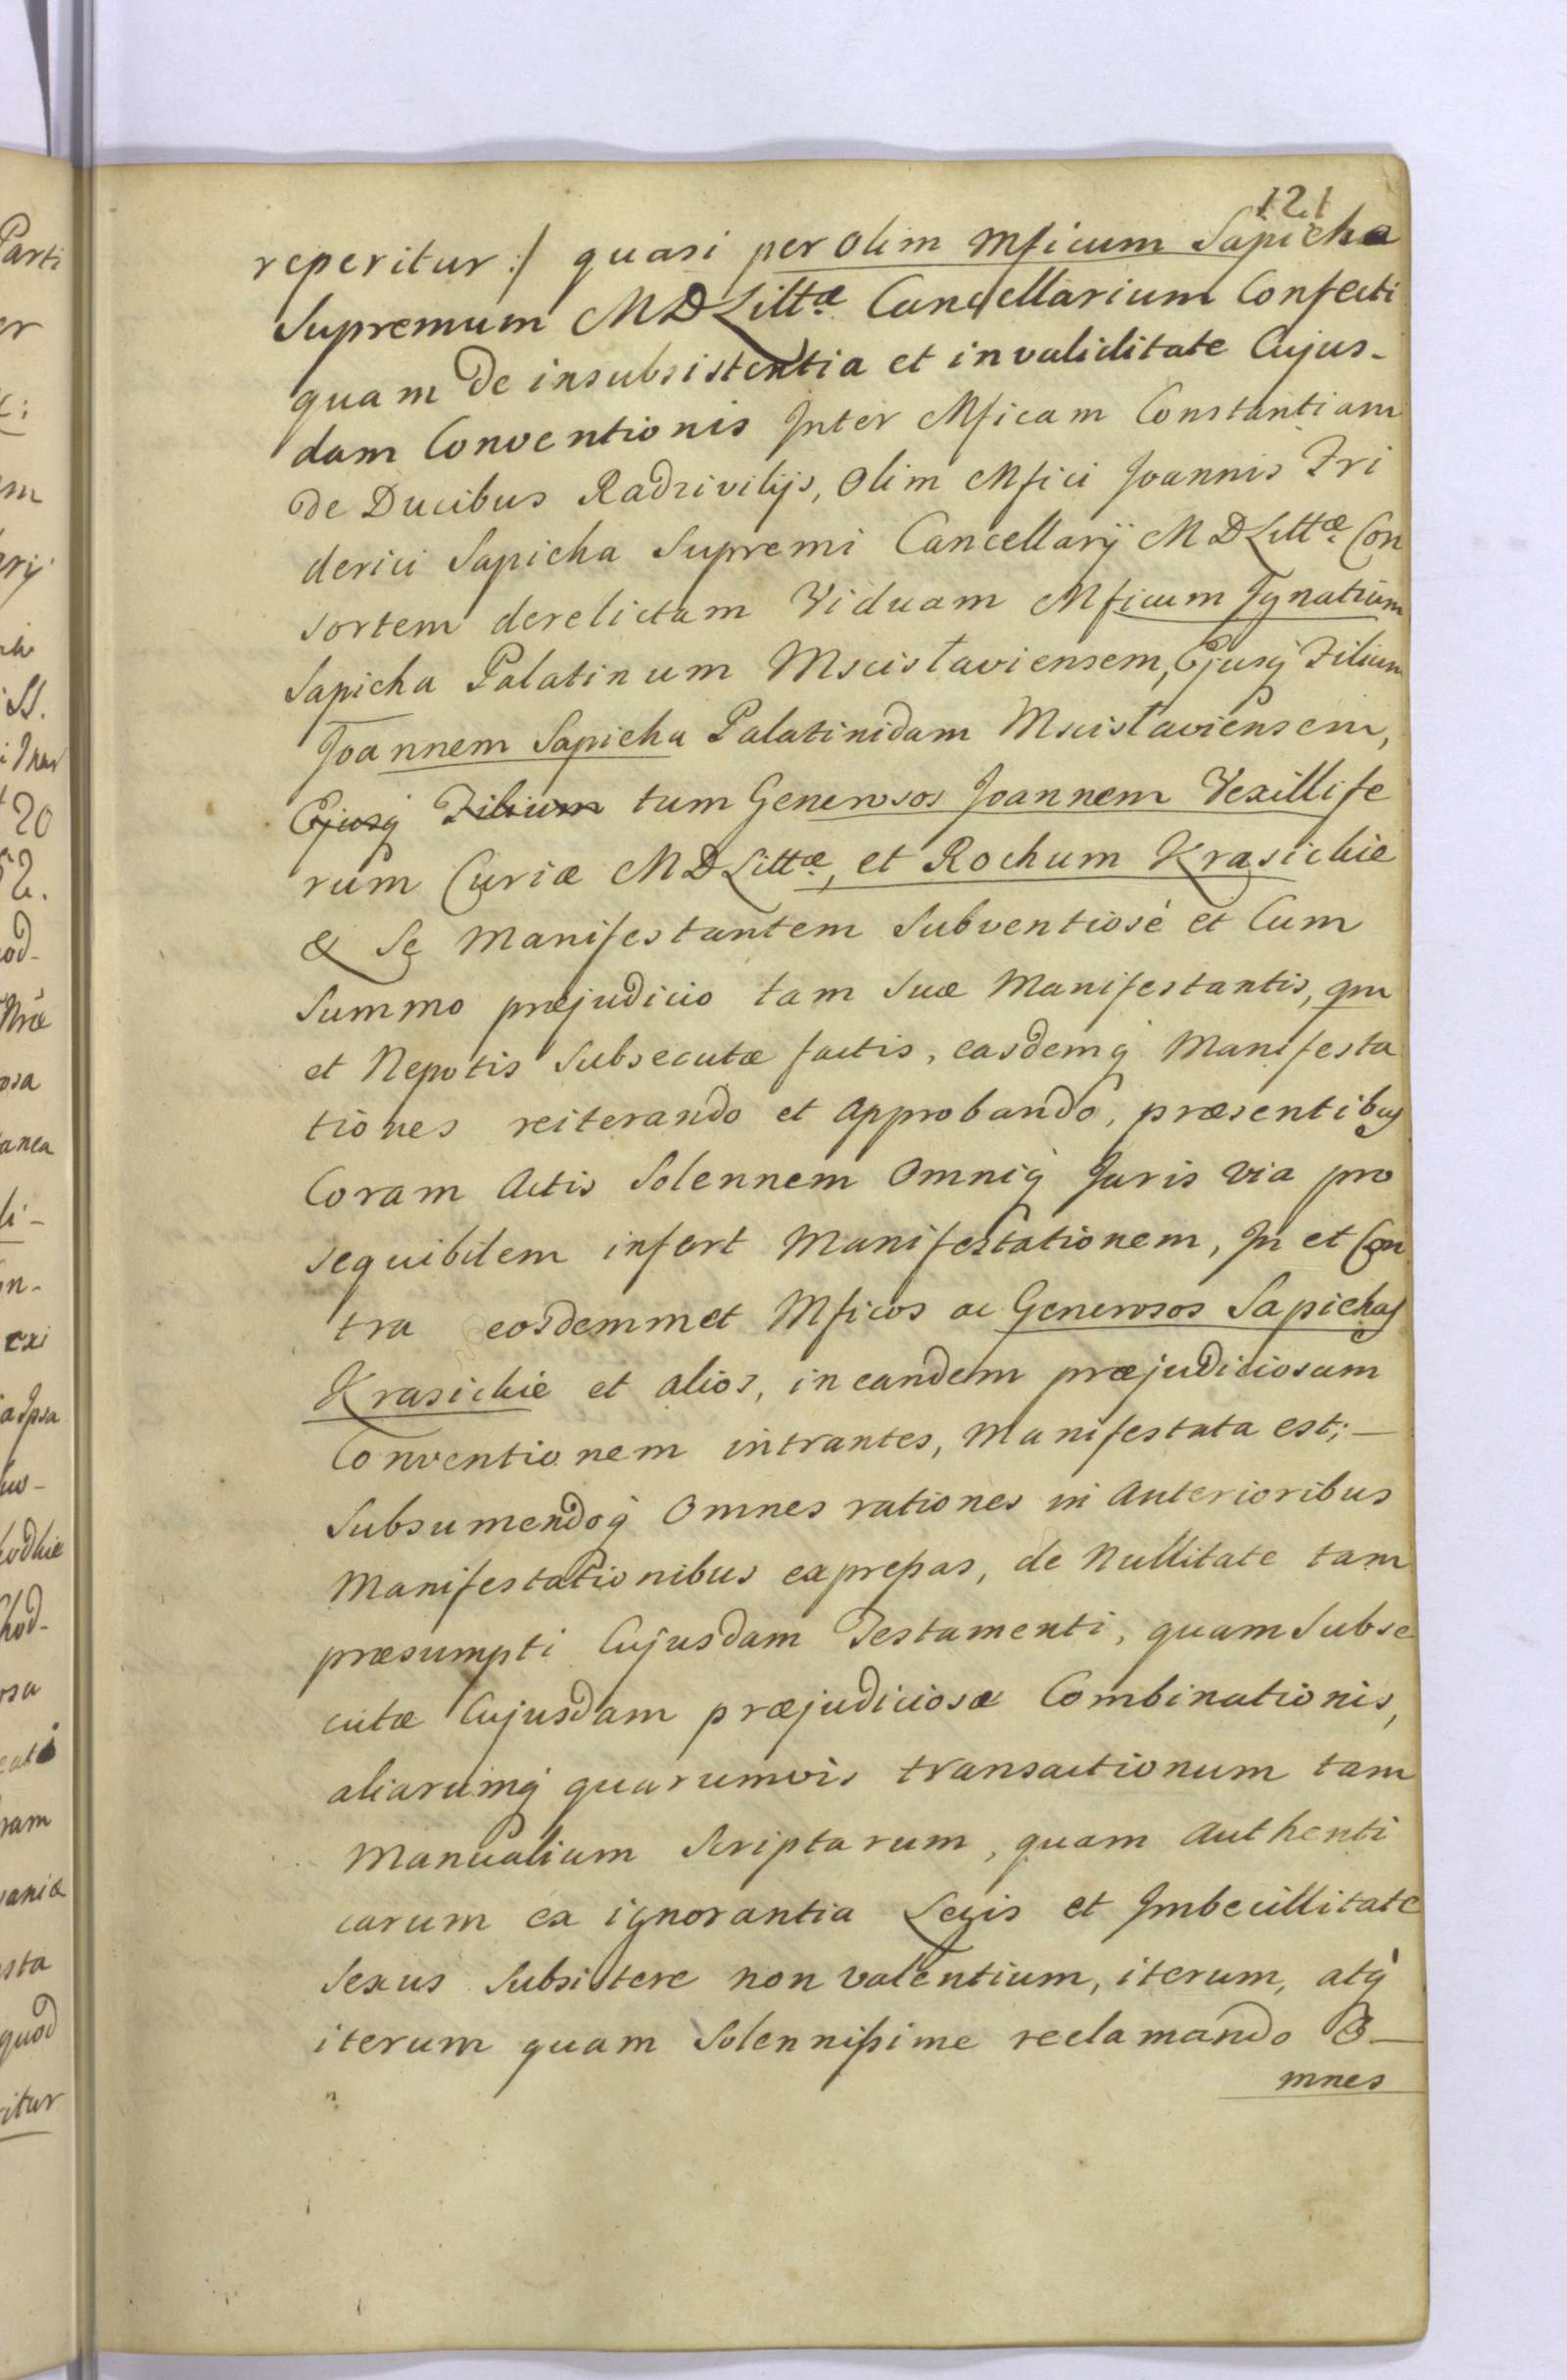 121
reperitur :/ quasi per olim Mficum Sapieha
Supremum M D Littæ Cancellarium Confecti
quam de insubsistentia et invaliditate Cujus-
dam Conventionis Inter Mficam Constantiam
de Ducibus Radzivilijs, olim Mfici Joannis Fri
derici Sapieha Supremi Cancellarij M D Littæ Con
sortem derelictam Viduam Mficum Ignatium
Sapieha Palatinum Mscislaviensem, Ejusq Filium
Joannem Sapieha Palatinidam Mscislaviensem,
Ejusq Filium tum Generosos Joannem Vexillife
rum Curiæ M D Littæ, et Rochum Krasickie
& Se Manifestantem Subventiosé et Cum
Summo præjudicio tam Suæ Manifestantis, qm
et Nepotis Subsecutæ factis, easdemq Manifesta
tiones reiterando et Approbando, præsentibus
Coram Actis Solennem Omniq Juris via pro
sequibilem infert Manifestationem, In et Con
tra eosdemmet Mficos ac Generosos Sapiehas
Krasickie et alios, in eandem præjudiciosam
Conventionem intrantes, Manifestata est; —
Subsumendoq Omnes rationes in Anterioribus
Manifestationibus expressas, de Nullitate tam
præsumpti Cujusdam Testamenti, quam Subse
cutæ Cujusdam præjudiciosæ Combinationis,
aliarumq quarumvis transactionum tam
Manualium Scriptarum, quam Authenti
carum ex ignorantia Legis et Imbecillitate
Sexus Subsistere non valentium, iterum, atq
iterum quam Solennissime reclamando O—
mnes
Parti
er
20
quod
itur